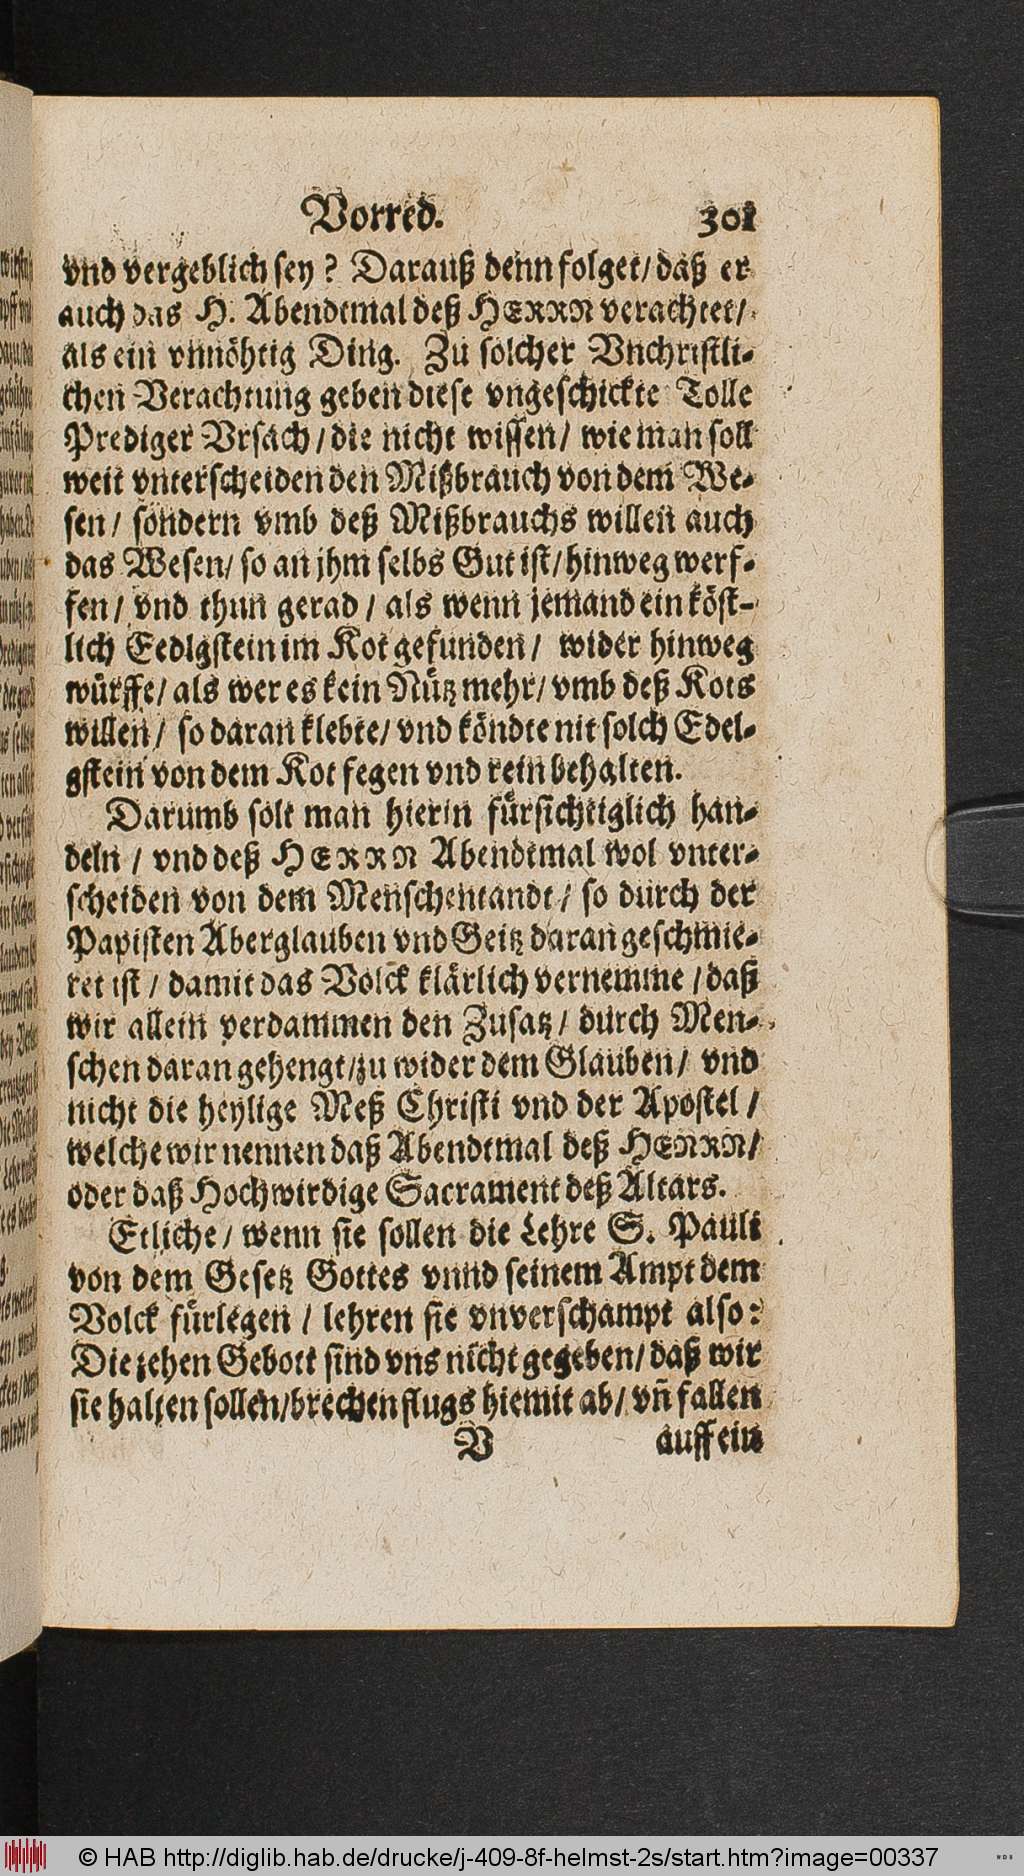 Vorred. 301
vnd vergeblich sey? Darauß denn folget/ daß er
auch das H. Abendtmal deß HERRN verachtet/
als ein vnnöhtig Ding. Zu solcher Vnchristli-
chen Verachtung geben diese vngeschickte Tolle
Prediger Vrsach/ die nicht wissen/ wie man soll
weit vnterscheiden den Mißbrauch von dem We-
sen/ sondern vmb deß Mißbrauchs willen auch
das Wesen/ so an jhm selbs Gut ist/ hinweg werf-
fen/ vnd thun gerad/ als wenn jemand ein köst-
lich Eedlgstein im Kot gefunden/ wider hinweg
würffe/ als wer es kein Nütz mehr/ vmb deß Kots
willen/ so daran klebte/ vnd köndte nit solch Edel-
gstein von dem Kot fegen vnd rein behalten.
Darumb solt man hierin fürsichtiglich han-
deln/ vnd deß HERRN Abendtmal wol vnter-
scheiden von dem Menschentandt/ so durch der
Papisten Aberglauben vnd Geitz daran geschmie-
ret ist/ damit das Volck klärlich vernemme/ daß
wir allein verdammen den Zusatz/ durch Men-
schen daran gehengt/ zu wider dem Glauben/ vnd
nicht die heylige Meß Christi vnd der Apostel/
welche wir nennen daß Abendtmal deß HENRN/
oder daß Hochwirdige Sacrament deß Altars.
Etliche/ wenn sie sollen die Lehre S. Pauli
von dem Gesetz Gottes vnnd seinem Ampt dem
Volck fürlegen/ lehren sie vnverschampt also:
Die zehen Gebott sind vns nicht gegeben/ daß wir
sie halten sollen/ brechen flugs hiemit ab/ vñ fallen
V auff ein
© HAB http://diglib.hab.de/drucke/j-409-8f-helmst-2s/start.htm?image=00337